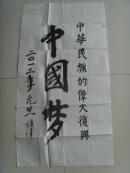 中華民族的偉大復興
中國梦
二〇一三年元旦